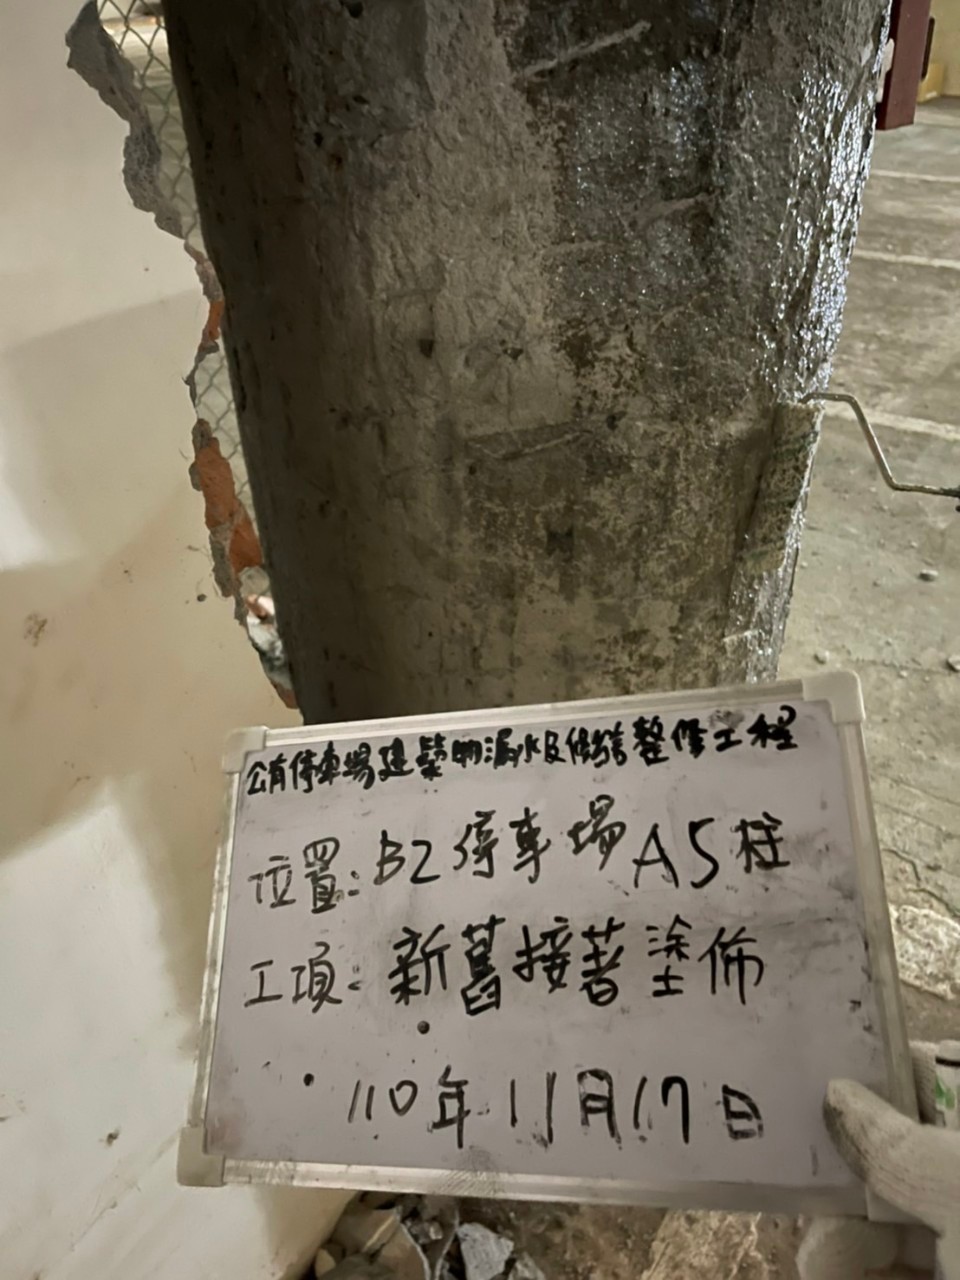 公有停車場建築物漏水及修繕整修工程
位置:B2停車場A5柱
工項:新舊接著塗佈
110年11月17日